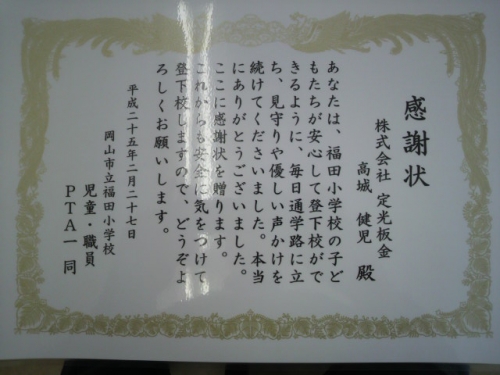 感謝状
株式会社 定光板金
高城 健児 殿
あなたは、福田小学校の子ど
もたちが安心して登下校がで
きるように、毎日通学路に立
ち、見守りや優しい声かけを
続けてくださいました。本当
にありがとうございました。
ここに感謝状を贈ります。
これからも安全に気をつけて
登下校しますので、どうぞよ
ろしくお願いします。
平成二十五年二月二十七日
岡山市立福田小学校
児童・職員
PTA一同